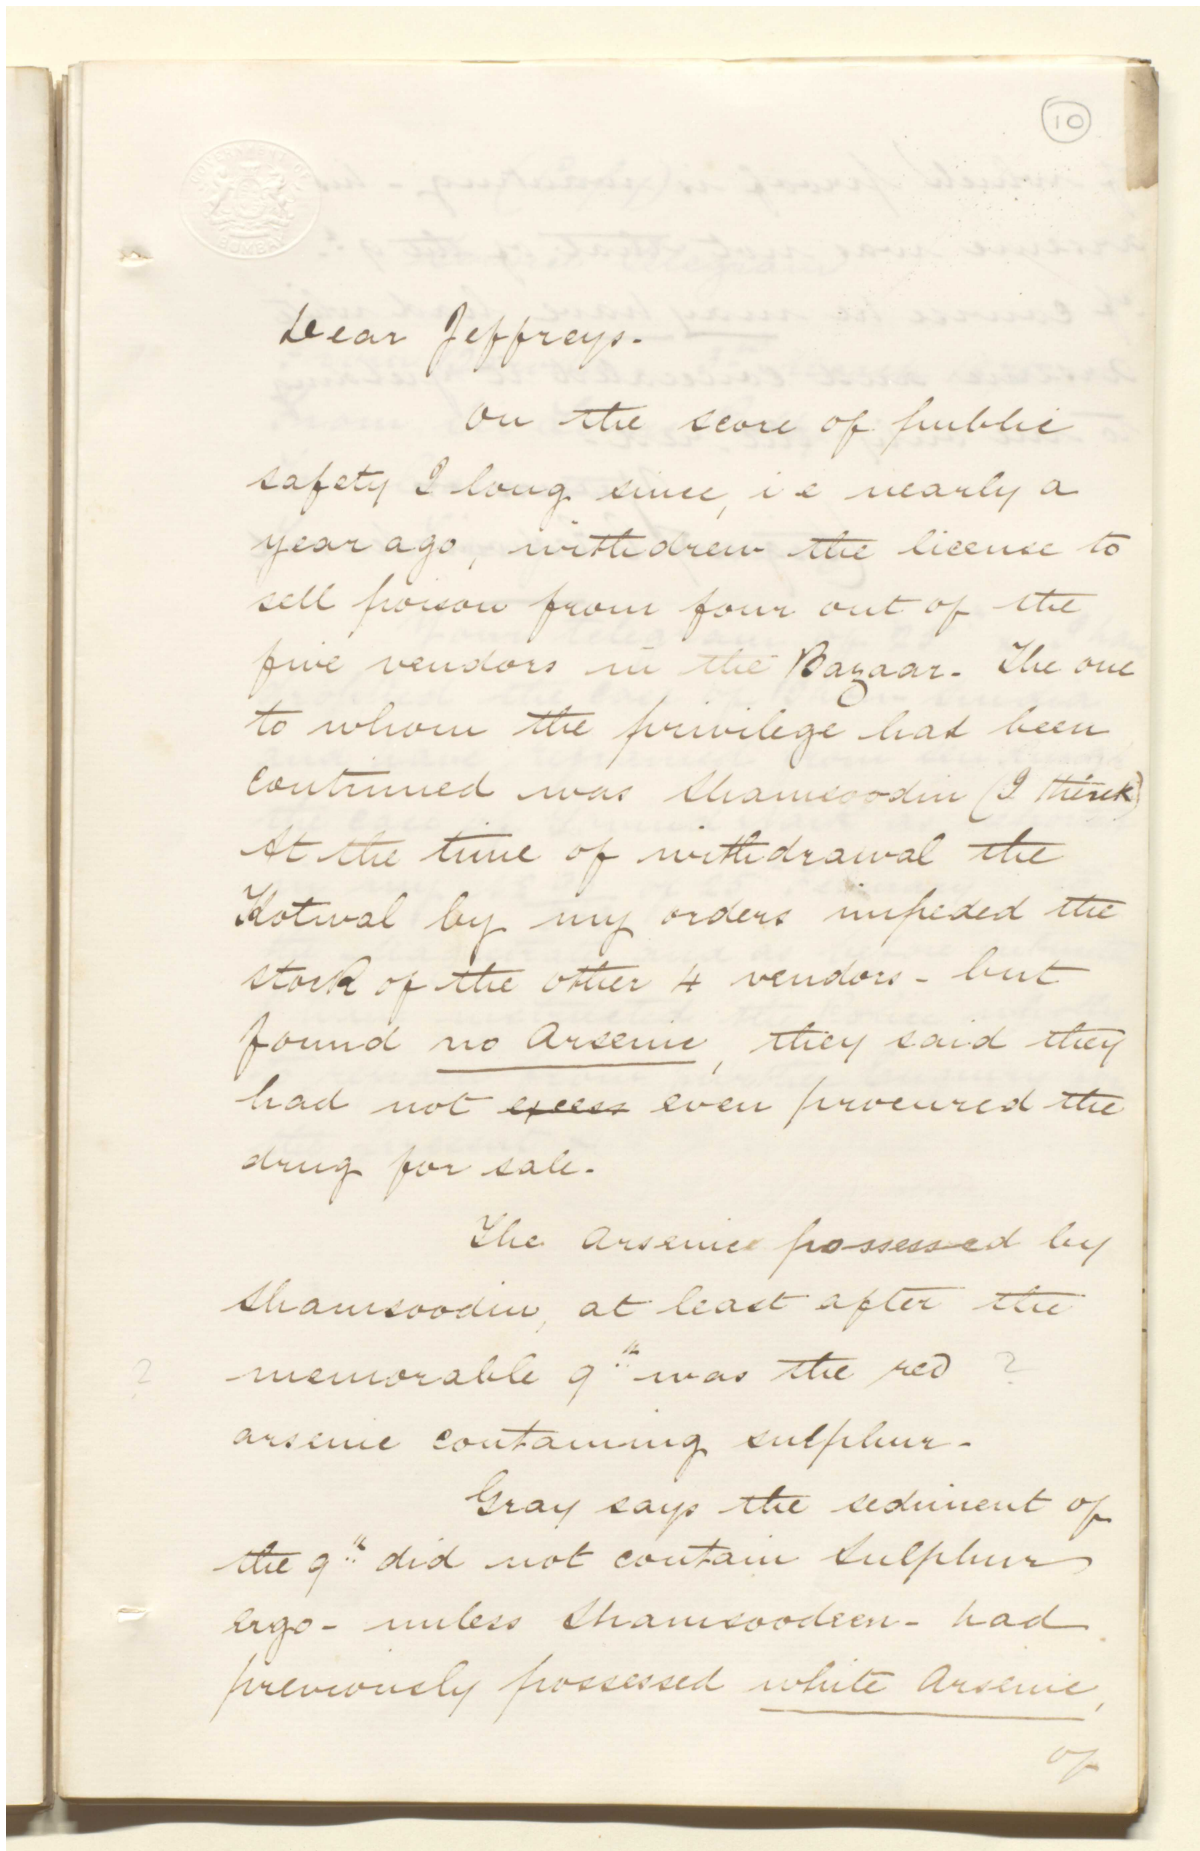 10
GOVERNMENT OF
BOMBAY
Dear Jeffreys.
On the score of public
safety I long since, i e nearly a
year ago, withdrew the license to
sell poison from four out of the
five vendors in the Bazaar. The one
to whom the privilege had been
continued was Shamsoodin (I think)
At the time of withdrawal the
Kotwal by my orders impeded the
stock of the other 4 vendors - but
found no Arsenic, they said they
had not even procured the
drug for sale.
The Arsenic possessed by
Shamsoodin, at least after the
? memorable 9th was the red ?
arsenic containing sulphur.
Gray says the sediment of
the 9th did not contain Sulphur
ergo - unless Shamsoodeen - had
previously possessed white Arsenic,
of